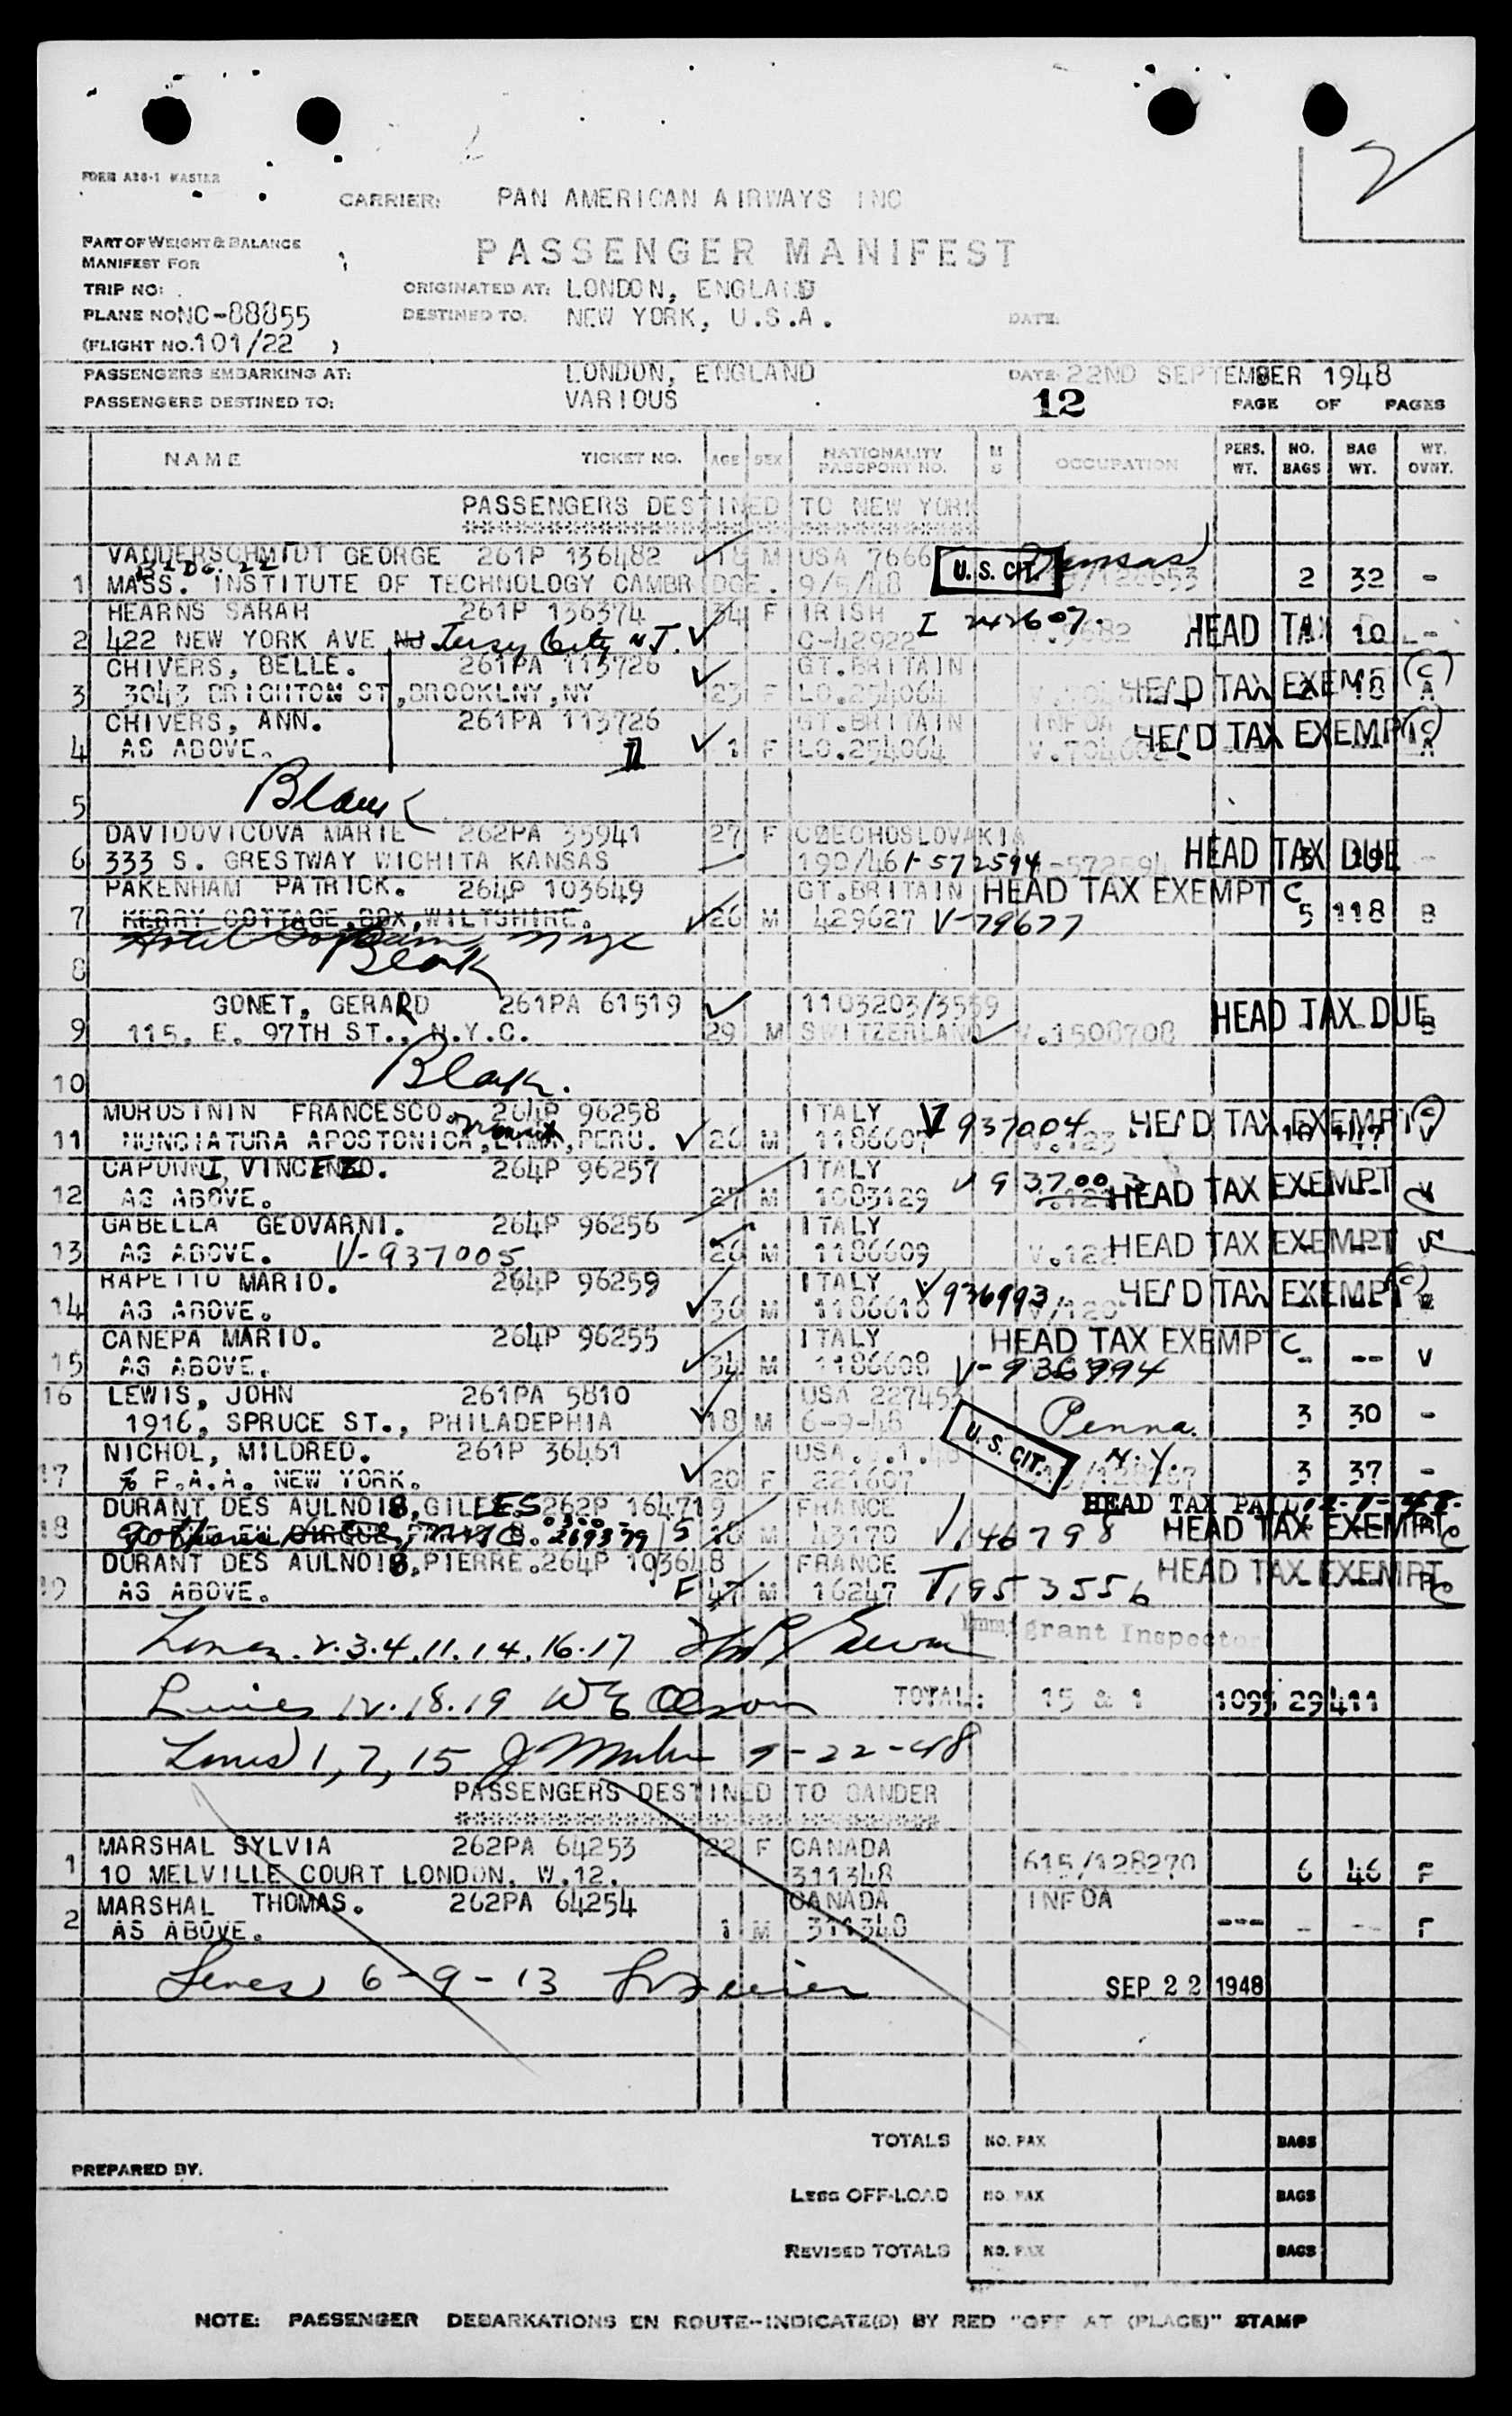 2
FORM A36-1 MASTER
CARRIER: PAN AMERICAN AIRWAYS INC
PART OF WEIGHT & BALANCE
MANIFEST FOR
PASSENGER MANIFEST
TRIP NO:
ORIGINATED AT: LONDON, ENGLAND
PLANE NO NC-88855
DESTINED TO: NEW YORK, U.S.A.
DATE:
(FLIGHT NO. 101/22 )
PASSENGERS EMBARKING AT: LONDON, ENGLAND DATE 22ND SEPTEMBER 1948
PASSENGERS DESTINED TO: VARIOUS 12 PAGE OF PAGES
NAME TICKET NO. AGE SEX NATIONALITY PASSPORT NO. M S OCCUPATION PERS. WT. NO. BAGS BAG WT. WT. OVNT.
PASSENGERS DESTINED TO NEW YORK
VANDERSCHMIDT GEORGE 261P 136482 18 M USA 7666 U. S. CIT. Kansas
BLDG. 22
1 MASS. INSTITUTE OF TECHNOLOGY CAMBRIDGE. 9/5/48 2 32 -
HEARNS SARAH 261P 136374 34 F IRISH I 242607.
2 422 NEW YORK AVE NJ Jersey City N.J. C-42922 HEAD TAX 10 -
CHIVERS, BELLE. 261PA 113726 GT.BRITAIN
3 3043 BRIGHTON ST, BROOKLNY, NY 23 F LO.254064 HEAD TAX EXEMPT 18 (C) A
CHIVERS, ANN. 261PA 113726 GT.BRITAIN INFOA
4 AS ABOVE. 1 F LO.254064 V.704602 HEAD TAX EXEMPT (C) A
5 Blank
DAVIDOVICOVA MARIE 262PA 35941 27 F CZECHOSLOVAKIA
6 333 S. GRESTWAY WICHITA KANSAS 190/46 I-572594 HEAD TAX DUE -
PAKENHAM PATRICK. 264P 103649 GT.BRITAIN HEAD TAX EXEMPT C
7 KERRY COTTAGE, BOX, WILTSHIRE. 26 M 429627 V-79677 5 118 B
Hotel NYC
8 Blank
GONET, GERARD 261PA 61519 1103203/3559
9 115. E. 97TH ST., N.Y.C. 29 M SWITZERLAND V.1508708 HEAD TAX DUE B
10 Blank.
MOROSININ FRANCESCO. 264P 96258 ITALY V 937004 HEAD TAX EXEMPT (C)
11 NUNCIATURA APOSTONICA, LIMA, PERU. 26 M 1186607 V.123 V
CAPONNI, VINCENZO. 264P 96257 ITALY V 937003
12 AS ABOVE. 27 M 1083129 HEAD TAX EXEMPT V
GABELLA GEOVARNI. 264P 96256 ITALY
13 AS ABOVE. V-937005 26 M 1186609 V.122 HEAD TAX EXEMPT V
RAPETTO MARIO. 264P 96259 ITALY V 936993.
14 AS ABOVE. 36 M 1186610 V/120 HEAD TAX EXEMPT (C)
CANEPA MARIO. 264P 96255 ITALY HEAD TAX EXEMPT C
15 AS ABOVE. 34 M 1186608 V-936994 - -- V
16 LEWIS, JOHN 261PA 5810 USA 227453
1916, SPRUCE ST., PHILADEPHIA 18 M 6-9-48 U. S. CIT. Penna. 3 30 -
NICHOL, MILDRED. 261P 36461 N.Y.
17 % P.A.A. NEW YORK. 20 F 221607 3 37 -
DURANT DES AULNOIS, GILLES 262P 164719 FRANCE HEAD TAX PAID
18 M 43170 V 146798 HEAD TAX EXEMPT C
DURANT DES AULNOIS, PIERRE. 264P 103648 FRANCE HEAD TAX EXEMPT
19 AS ABOVE. F 47 M 16247 T1953556 C
Immigrant Inspector
Lines. 2.3.4.11.14.16.17
Lines 12.18.19 W E Olson TOTAL: 15 & 1 1095 29 411
Lines 1, 7, 15 9-22-48
PASSENGERS DESTINED TO GANDER
MARSHAL SYLVIA 262PA 64253 22 F CANADA
1 10 MELVILLE COURT LONDON. W.12. 311348 615/128270 6 46 F
MARSHAL THOMAS. 262PA 64254 CANADA INFOA
2 AS ABOVE. 1 M 311348 --- - -- F
Lines 6-9-13 SEP 22 1948
TOTALS NO. PAX BAGS
PREPARED BY.
LESS OFF-LOAD NO. PAX BAGS
REVISED TOTALS NO. PAX BAGS
NOTE: PASSENGER DEBARKATIONS EN ROUTE--INDICATE(D) BY RED "OFF AT (PLACE)" STAMP